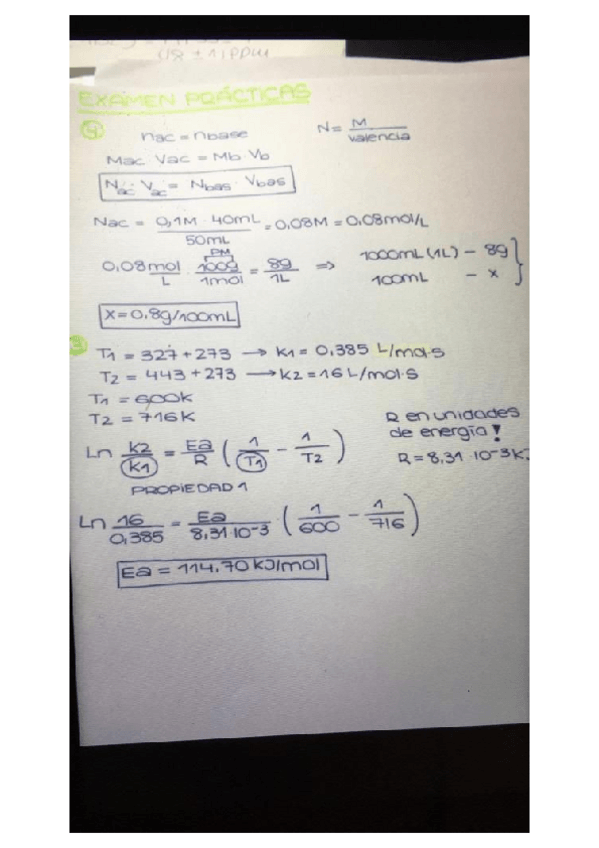 (98 ± 1) ppm
EXAMEN PRÁCTICAS
4
nac = nbase
N = M / valencia
Mac Vac = Mb · Vb
Nac · Vac = Nbas · Vbas
Nac = 0,1M · 40mL / 50mL = 0,08M = 0,08mol/L
PM
0,08 mol / L · 100g / 1mol = 8g / 1L ⇒ 1000mL (1L) – 8g
100mL – x
x = 0,8g/100mL
T1 = 327 + 273 → K1 = 0,385 L/mol·s
T2 = 443 + 273 → K2 = 16 L/mol·s
T1 = 600K
T2 = 716K
R en unidades
de energía!
R = 8,31 · 10-3 K
Ln K2 / K1 = Ea / R ( 1 / T1 – 1 / T2 )
PROPIEDAD 1
Ln 16 / 0,385 = Ea / 8,31·10-3 · ( 1 / 600 – 1 / 716 )
Ea = 114.70 KJ/mol